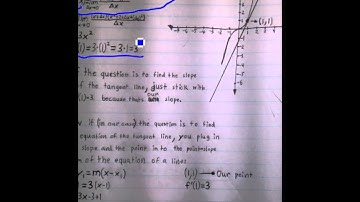 Δx
3x²
(1)=3·(1)²=3·1=3
(1,1)
the question is to find the slope
f the tangent line, just stick with
(1)=3, because thats our slope.
if (in our case) the question is to find
equation of the tangent line, you plug in
slope and the point in to the point-slope
m of the equation of a line:
y₁=m(x-x₁)
(1,1) → Our point
=3(x-1)
f'(1)=3
3x-3+1